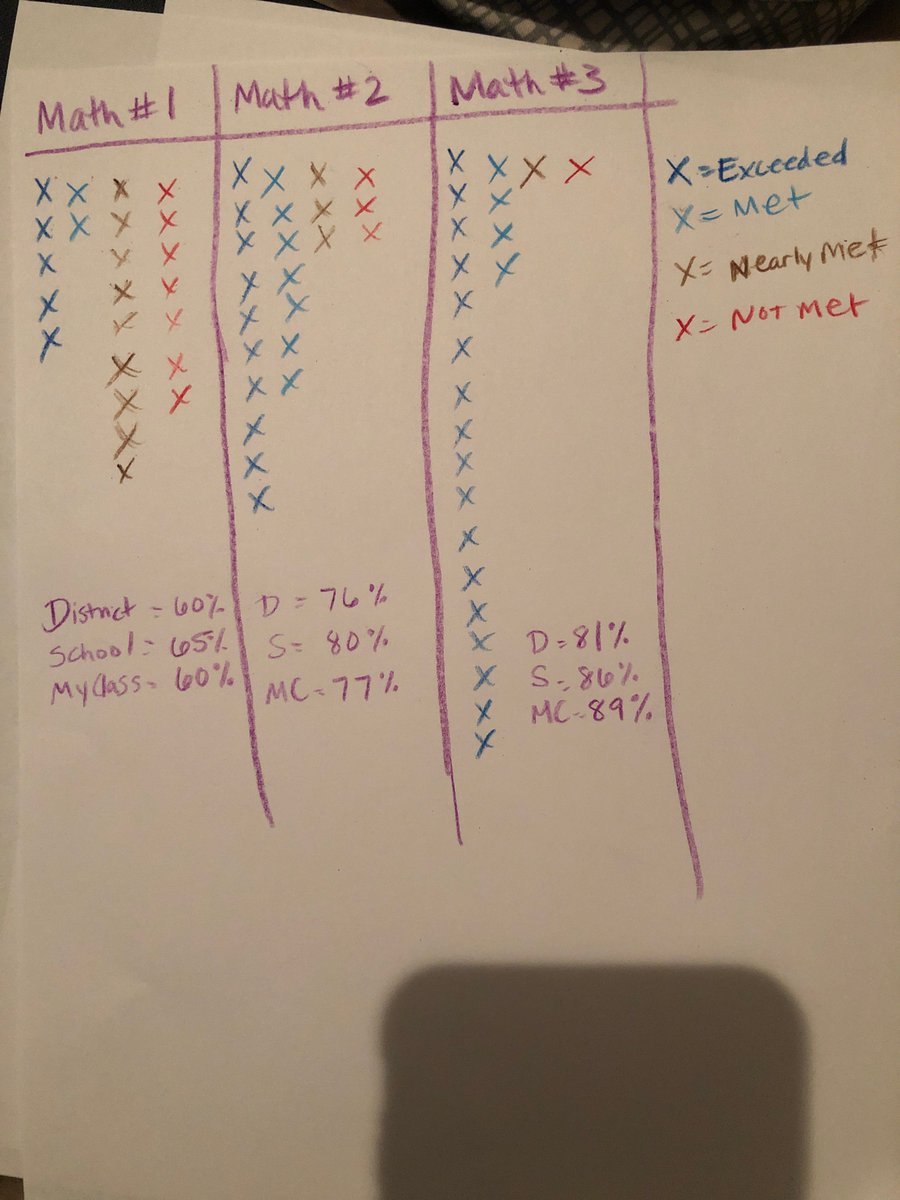 Math #1 Math #2 Math #3
X X X X X X X X X X X X
X X X X X X X X X X
X X X X X X X X X
X X X X X X X
X X X X X X
X X X X X
X X X X X
X X X
X X X
X X
X
X
X
X
X
X
X
X = Exceeded
X = Met
X = Nearly Met
X = Not Met
District = 60%
School = 65%
My Class = 60%
D = 76%
S = 80%
MC = 77%
D = 81%
S = 86%
MC = 89%